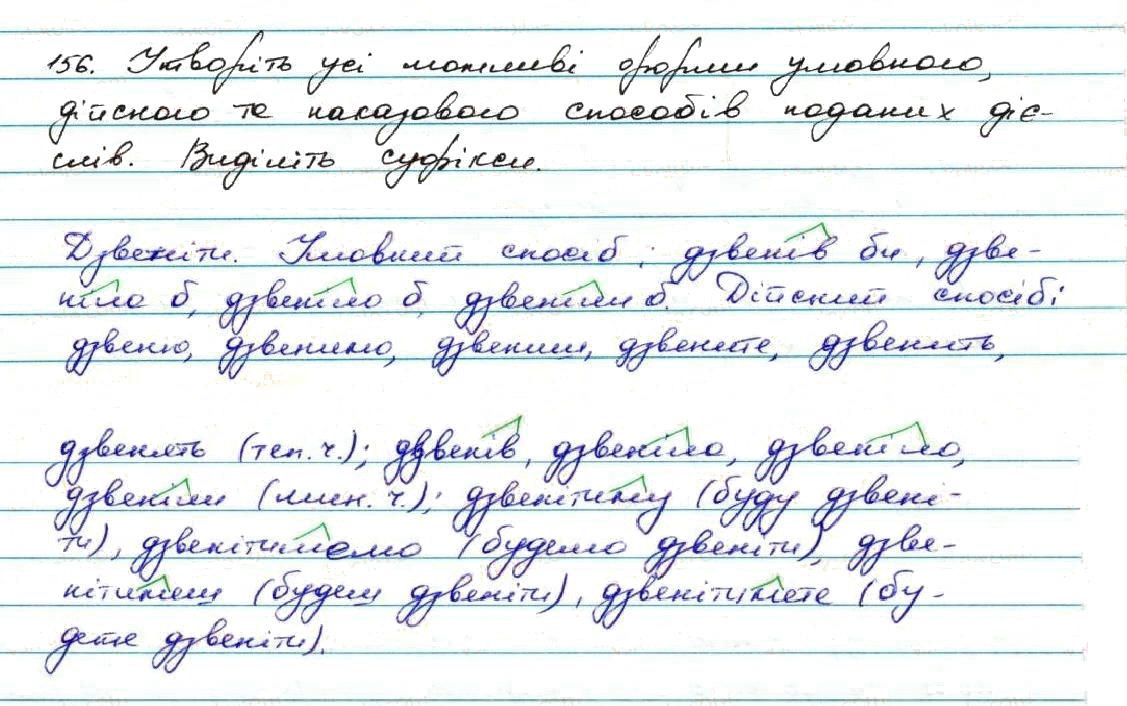 156. Утворіть усі можливі форми умовного,
дійсного та наказового способів поданих діє-
слів. Виділіть суфікси.
Дзвеніти. Умовний спосіб: дзвенів би, дзве-
ніла б, дзвеніло б, дзвеніли б. Дійсний спосіб:
дзвеню, дзвенимо, дзвениш, дзвените, дзвенить,
дзвенять (теп. ч.); дзвенів, дзвеніла, дзвеніло,
дзвеніли (мин. ч.); дзвенітиму (буду дзвені-
ти), дзвенітимемо (будемо дзвеніти), дзве-
нітимеш (будеш дзвеніти), дзвенітимете (бу-
дете дзвеніти).